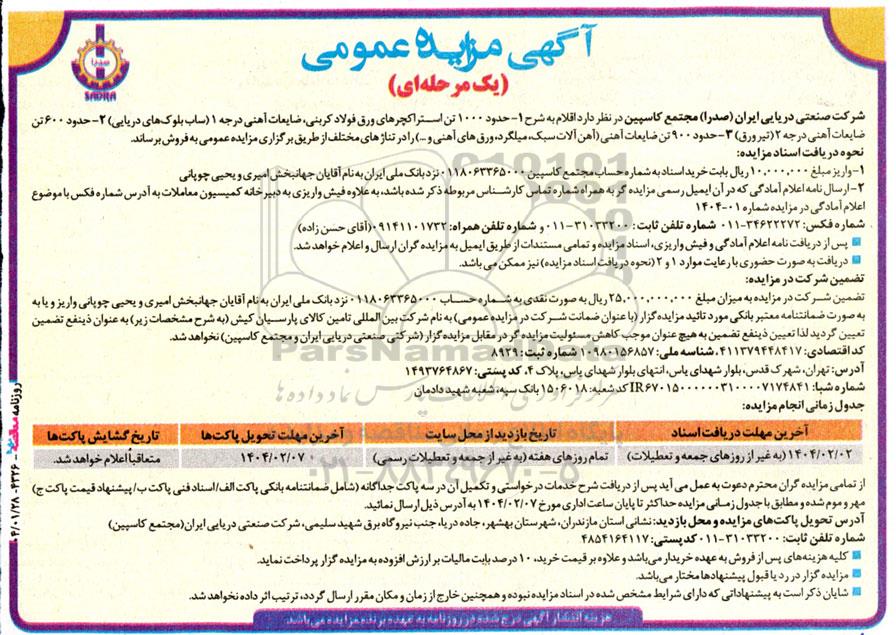 آگهی مزایده عمومی
(یک مرحله‌ای)
صدرا
SADRA
شرکت صنعتی دریایی ایران (صدرا) مجتمع کاسپین در نظر دارد اقلام به شرح ۱- حدود ۱۰۰۰ تن استراکچرهای ورق فولاد کربنی، ضایعات آهنی درجه ۱ (ساب بلوک‌های دریایی) ۲- حدود ۶۰۰ تن
ضایعات آهنی درجه ۲ (تیر ورق) ۳- حدود ۹۰۰ تن ضایعات آهنی (آهن آلات سبک، میلگرد، ورق های آهنی و...) را در تناژهای مختلف از طریق برگزاری مزایده عمومی به فروش برساند.
نحوه دریافت اسناد مزایده:
۱- واریز مبلغ ۱۰,۰۰۰,۰۰۰ ریال بابت خرید اسناد به شماره حساب مجتمع کاسپین ۰۱۱۸۰۶۳۳۶۵۰۰۰ نزد بانک ملی ایران به نام آقایان جهانبخش امیری و یحیی چوپانی
۲- ارسال نامه اعلام آمادگی که در آن ایمیل رسمی مزایده گر به همراه شماره تماس کارشناس مربوطه ذکر شده باشد، به علاوه فیش واریزی به دبیرخانه کمیسیون معاملات به آدرس شماره فکس با موضوع
اعلام آمادگی در مزایده شماره ۰۱-۱۴۰۴
شماره فکس: ۳۴۶۲۲۲۷۲-۰۱۱ شماره تلفن ثابت: ۳۱۰۳۳۲۰۰-۰۱۱ و شماره تلفن همراه: ۰۹۱۴۱۱۰۱۷۳۲ (آقای حسن زاده)
پس از دریافت نامه اعلام آمادگی و فیش واریزی، اسناد مزایده و تمامی مستندات از طریق ایمیل به مزایده گران ارسال و اعلام خواهد شد.
دریافت به صورت حضوری با رعایت موارد ۱ و ۲ (نحوه دریافت اسناد مزایده) نیز ممکن می باشد.
تضمین شرکت در مزایده:
تضمین شرکت در مزایده به میزان مبلغ ۲۵,۰۰۰,۰۰۰,۰۰۰ ریال به صورت نقدی به شماره حساب ۰۱۱۸۰۶۳۳۶۵۰۰۰ نزد بانک ملی ایران به نام آقایان جهانبخش امیری و یحیی چوپانی واریز و یا به
صورت ضمانتنامه معتبر بانکی مورد تائید مزایده گزار (با عنوان ضمانت شرکت در مزایده عمومی) به نام شرکت بین المللی تامین کالای پارسیان کیش (به شرح مشخصات زیر) به عنوان ذینفع تضمین
تعیین گردید لذا تعیین ذینفع تضمین به هیچ عنوان موجب کاهش مسئولیت مزایده گر در مقابل مزایده گزار (شرکتی صنعتی دریایی ایران و مجتمع کاسپین) نخواهد شد.
کد اقتصادی: ۴۱۱۳۷۹۴۴۸۴۱۷، شناسه ملی: ۱۰۹۸۰۱۵۶۸۵۷ شماره ثبت: ۸۹۳۹
آدرس: تهران، شهرک قدس، بلوار شهدای یاس، انتهای بلوار شهدای یاس، پلاک ۴، کد پستی: ۱۴۹۳۷۶۴۸۶۷
شماره شبا: IR۶۷۰۱۵۰۰۰۰۰۰۳۱۰۰۰۰۷۱۷۴۸۴۱ کد شعبه: ۱۵۰۶۰۱۸ بانک سپه شعبه شهید دادمان
جدول زمانی انجام مزایده:
آخرین مهلت دریافت اسناد تاریخ بازدید از محل سایت آخرین مهلت تحویل پاکت‌ها تاریخ گشایش پاکت‌ها
۱۴۰۴/۰۲/۰۲ (به غیر از روزهای جمعه و تعطیلات) تمام روزهای هفته (به غیر از جمعه و تعطیلات رسمی) ۱۴۰۴/۰۲/۰۷ متعاقباً اعلام خواهد شد.
از تمامی مزایده گران محترم دعوت به عمل می آید پس از دریافت شرح خدمات درخواستی و تکمیل آن در سه پاکت جداگانه (شامل ضمانتنامه بانکی پاکت الف/ اسناد فنی پاکت ب/ پیشنهاد قیمت پاکت ج)
مهر و موم شده و مطابق با جدول زمانی مزایده حداکثر تا پایان ساعت اداری مورخ ۱۴۰۴/۰۲/۰۷ به آدرس ذیل ارسال نمائید.
آدرس تحویل پاکت‌های مزایده و محل بازدید: نشانی استان مازندران، شهرستان بهشهر، جاده دریا، جنب نیروگاه برق شهید سلیمی، شرکت صنعتی دریایی ایران (مجتمع کاسپین)
شماره تلفن ثابت: ۳۱۰۳۳۲۰۰-۰۱۱ کد پستی: ۴۸۵۴۱۶۴۱۱۷
کلیه هزینه‌های پس از فروش به عهده خریدار می‌باشد و علاوه بر قیمت خرید، ۱۰ درصد بابت مالیات بر ارزش افزوده به مزایده گزار پرداخت نماید.
مزایده گزار در رد یا قبول پیشنهادها مختار می‌باشد.
شایان ذکر است به پیشنهاداتی که دارای شرایط مشخص شده در اسناد مزایده نبوده و همچنین خارج از زمان و مکان مقرر ارسال گردد، ترتیب اثر داده نخواهد شد.
هزینه انتشار آگهی درج شده در روزنامه به عهده برنده مزایده می‌باشد.
ParsNamadData